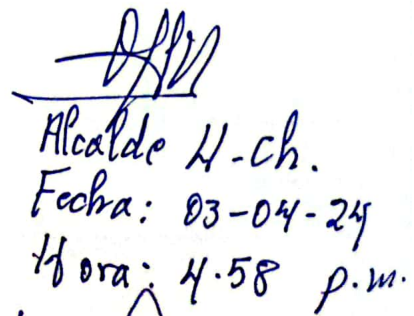 Alcalde H-Ch.
Fecha: 03-04-24
Hora: 4.58 p.m.